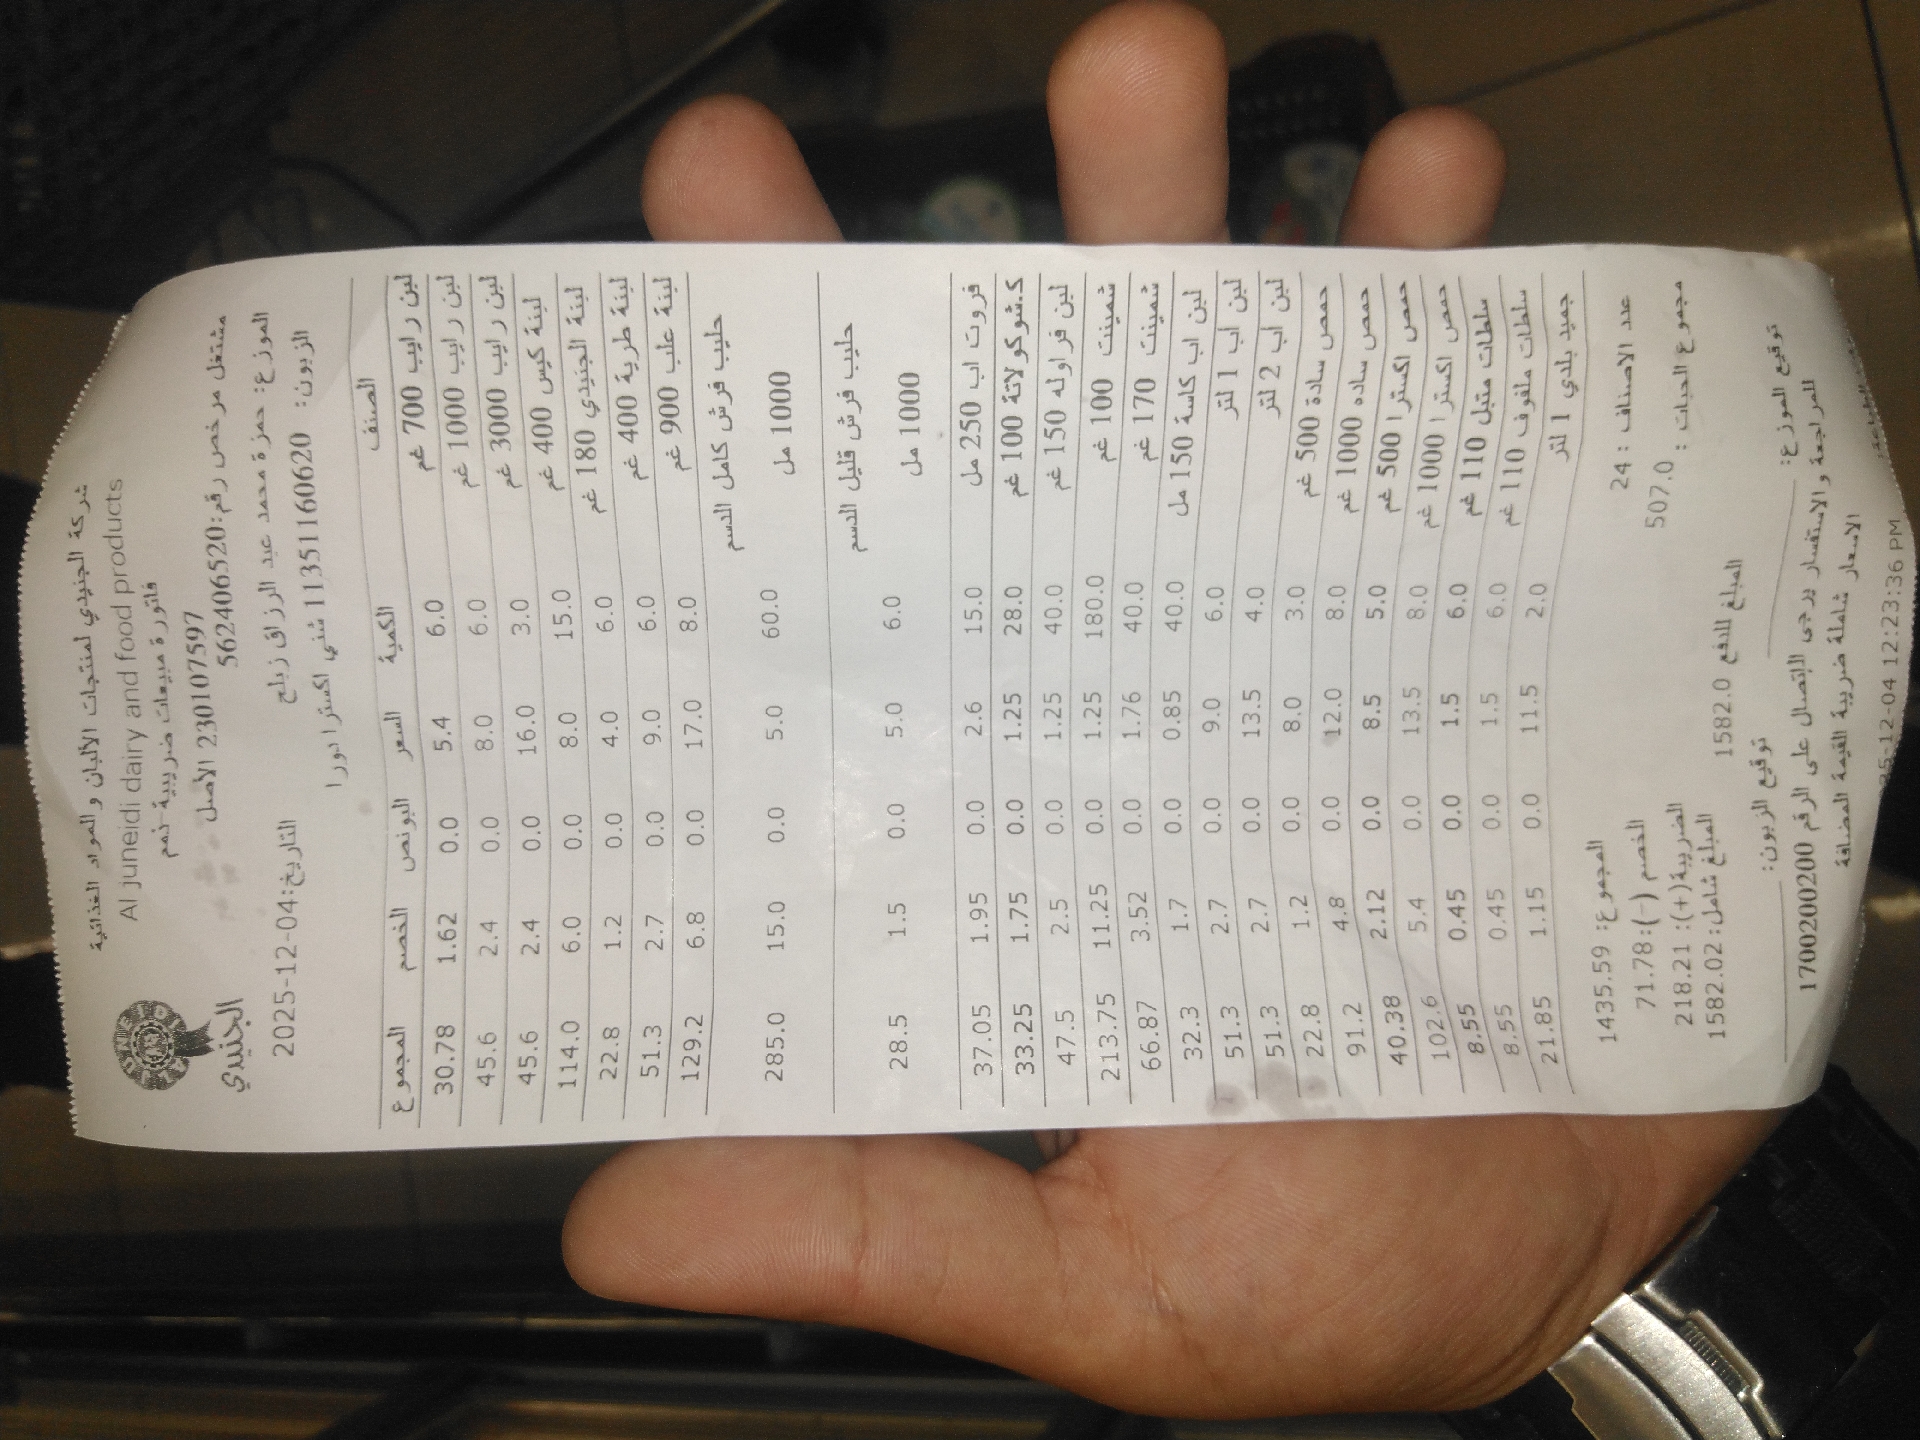 شركة الجنيدي لمنتجات الألبان والمواد الغذائية
Al juneidi dairy and food products
فاتورة مبيعات ضريبية-ذمم
230107597 الاصل
مشتغل مرخص رقم:562406520
الجنيدي
الموزع: حمزة محمد عبد الرزاق زبلح
التاريخ:2025-12-04
الزبون: 11351160620 شني اكسترا دورا
الصنف الكمية السعر البونص الخصم المجموع
لبن رايب 700 غم 6.0 5.4 0.0 1.62 30.78
لبن رايب 1000 غم 6.0 8.0 0.0 2.4 45.6
لبن رايب 3000 غم 3.0 16.0 0.0 2.4 45.6
لبنة كيس 400 غم 15.0 8.0 0.0 6.0 114.0
لبنة الجنيدي 180 غم 6.0 4.0 0.0 1.2 22.8
لبنة طرية 400 غم 6.0 9.0 0.0 2.7 51.3
لبنة علب 900 غم 8.0 17.0 0.0 6.8 129.2
حليب فرش كامل الدسم
1000 مل 60.0 5.0 0.0 15.0 285.0
حليب فرش قليل الدسم
1000 مل 6.0 5.0 0.0 1.5 28.5
فروت اب 250 مل 15.0 2.6 0.0 1.95 37.05
ك.شوكولاتة 100 غم 28.0 1.25 0.0 1.75 33.25
لبن فراوله 150 غم 40.0 1.25 0.0 2.5 47.5
شمينت 100 غم 180.0 1.25 0.0 11.25 213.75
شمينت 170 غم 40.0 1.76 0.0 3.52 66.87
لبن اب كاسة 150 مل 40.0 0.85 0.0 1.7 32.3
لبن اب 1 لتر 6.0 9.0 0.0 2.7 51.3
لبن اب 2 لتر 4.0 13.5 0.0 2.7 51.3
حمص سادة 500 غم 3.0 8.0 0.0 1.2 22.8
حمص ساده 1000 غم 8.0 12.0 0.0 4.8 91.2
حمص اكسترا 500 غم 5.0 8.5 0.0 2.12 40.38
حمص اكسترا 1000 غم 8.0 13.5 0.0 5.4 102.6
سلطات متبل 110 غم 6.0 1.5 0.0 0.45 8.55
سلطات ملفوف 110 غم 6.0 1.5 0.0 0.45 8.55
جميد بلدي 1 لتر 2.0 11.5 0.0 1.15 21.85
عدد الاصناف : 24 المجموع: 1435.59
مجموع الحبات : 507.0 الخصم (-):71.78
الضريبة(+): 218.21
المبلغ شامل: 1582.02
المبلغ للدفع 1582.0
توقيع الموزع: توقيع الزبون:
للمراجعة والاستفسار يرجى الإتصال على الرقم 1700200200
الاسعار شاملة ضريبة القيمة المضافة
12:23:36 PM